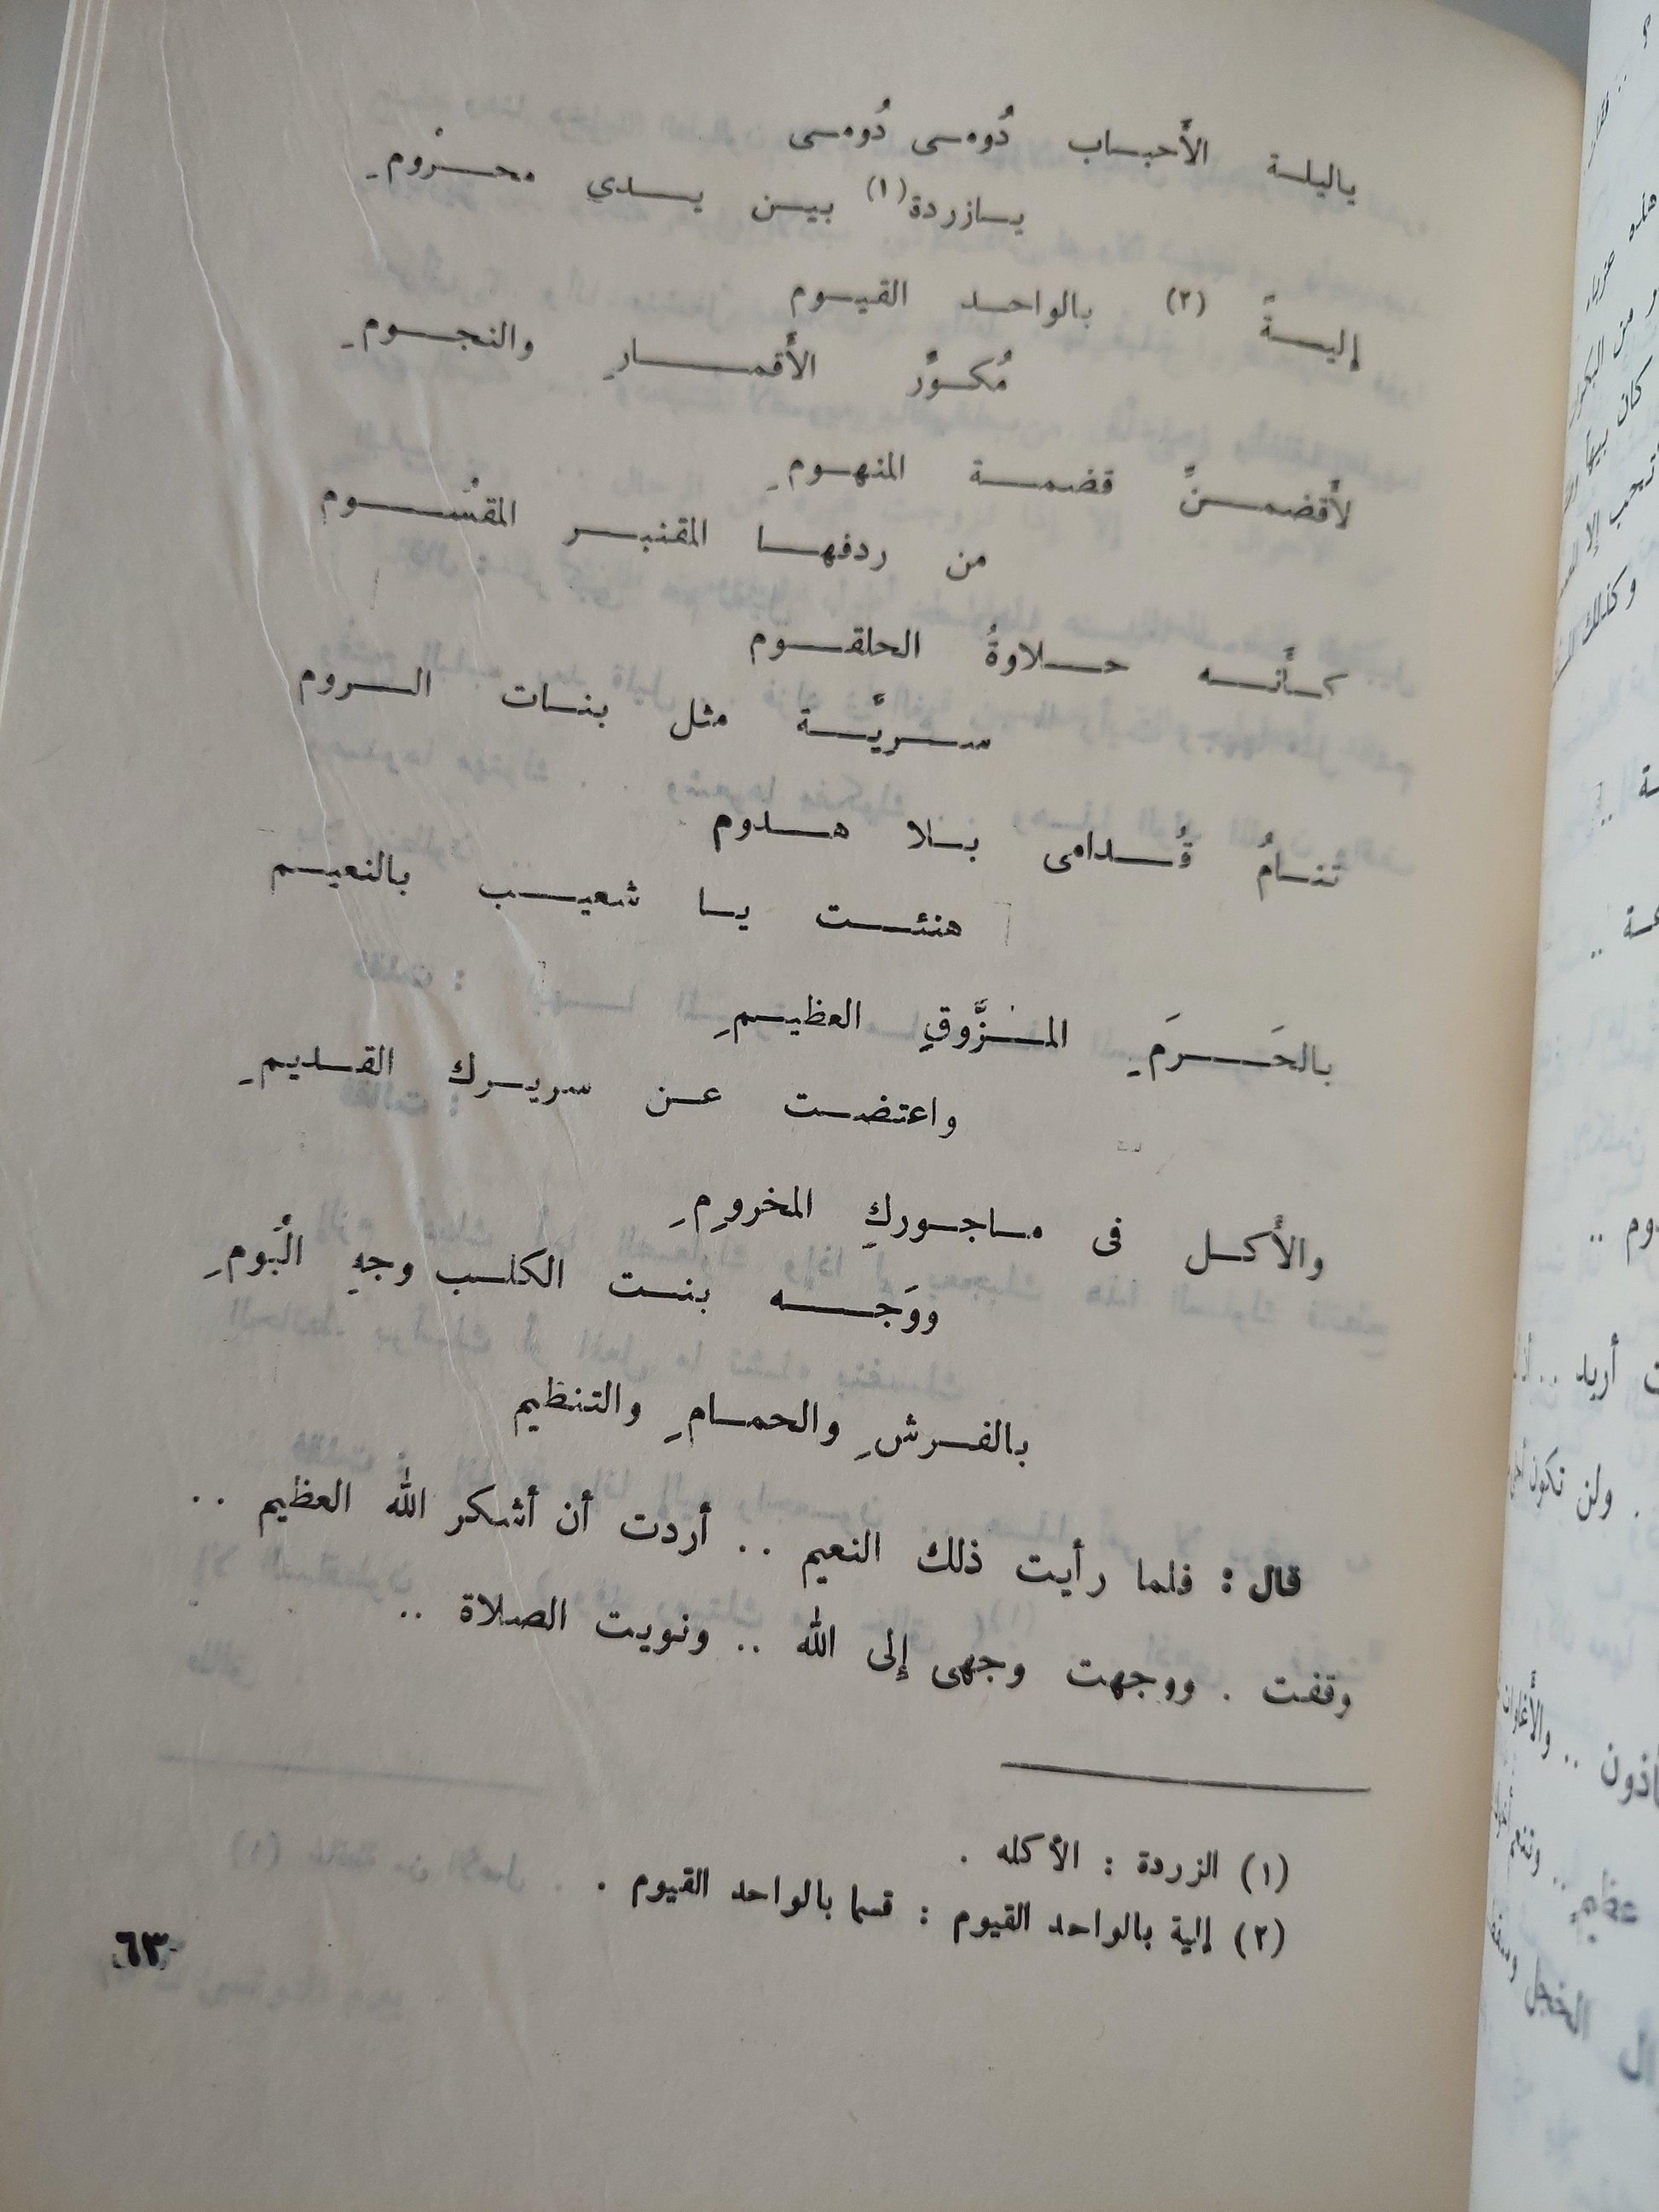 ياليلة الأحباب دُومى دُومى
يازردة(١) بين يدي محرْومِ
إليةً (٢) بالواحد القيوم
مُكوِّر الأقمارِ والنجومِ
لأقضمنَّ قضمة المنهومِ
من ردفها المقنبر المقسْوم
كأنه حلاوةُ الحلقوم
سريَّة مثل بنات الروم
تنامُ قُدامى بلا هدوم
هنئت يا شعيب بالنعيم
بالحَرَمِ المزَّوقِ العظيمِ
واعتضت عن سريرك القديمِ
والأكل فى ماجوركِ المخرومِ
ووَجه بنت الكلب وجهِ الْبومِ
بالفرشِ والحمامِ والتنظيم
قال : فلما رأيت ذلك النعيم .. أردت أن أشكر الله العظيم ..
وقفت . ووجهت وجهى إلى الله .. ونويت الصلاة ..
(١) الزردة : الأكله .
(٢) إلية بالواحد القيوم : قسما بالواحد القيوم .
٦٣